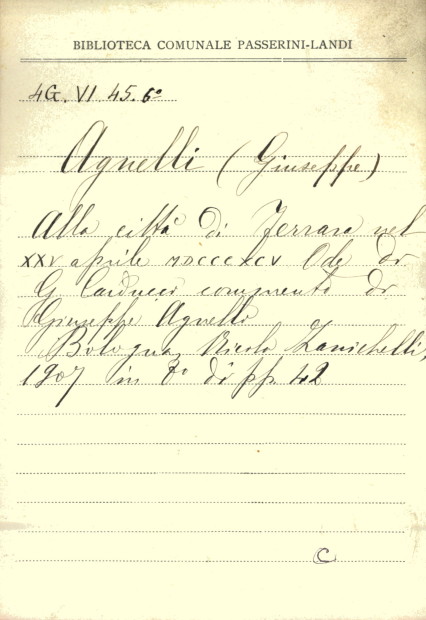 BIBLIOTECA COMUNALE PASSERINI-LANDI
4G. VI 45. 6º
Agnelli (Giuseppe)
Alla città di Ferrara nel
XXV aprile MDCCCXCV Ode di
G Carducci commento di
Giuseppe Agnelli
Bologna, Nicola Zanichelli,
1907 in 8º di pp. 42
C